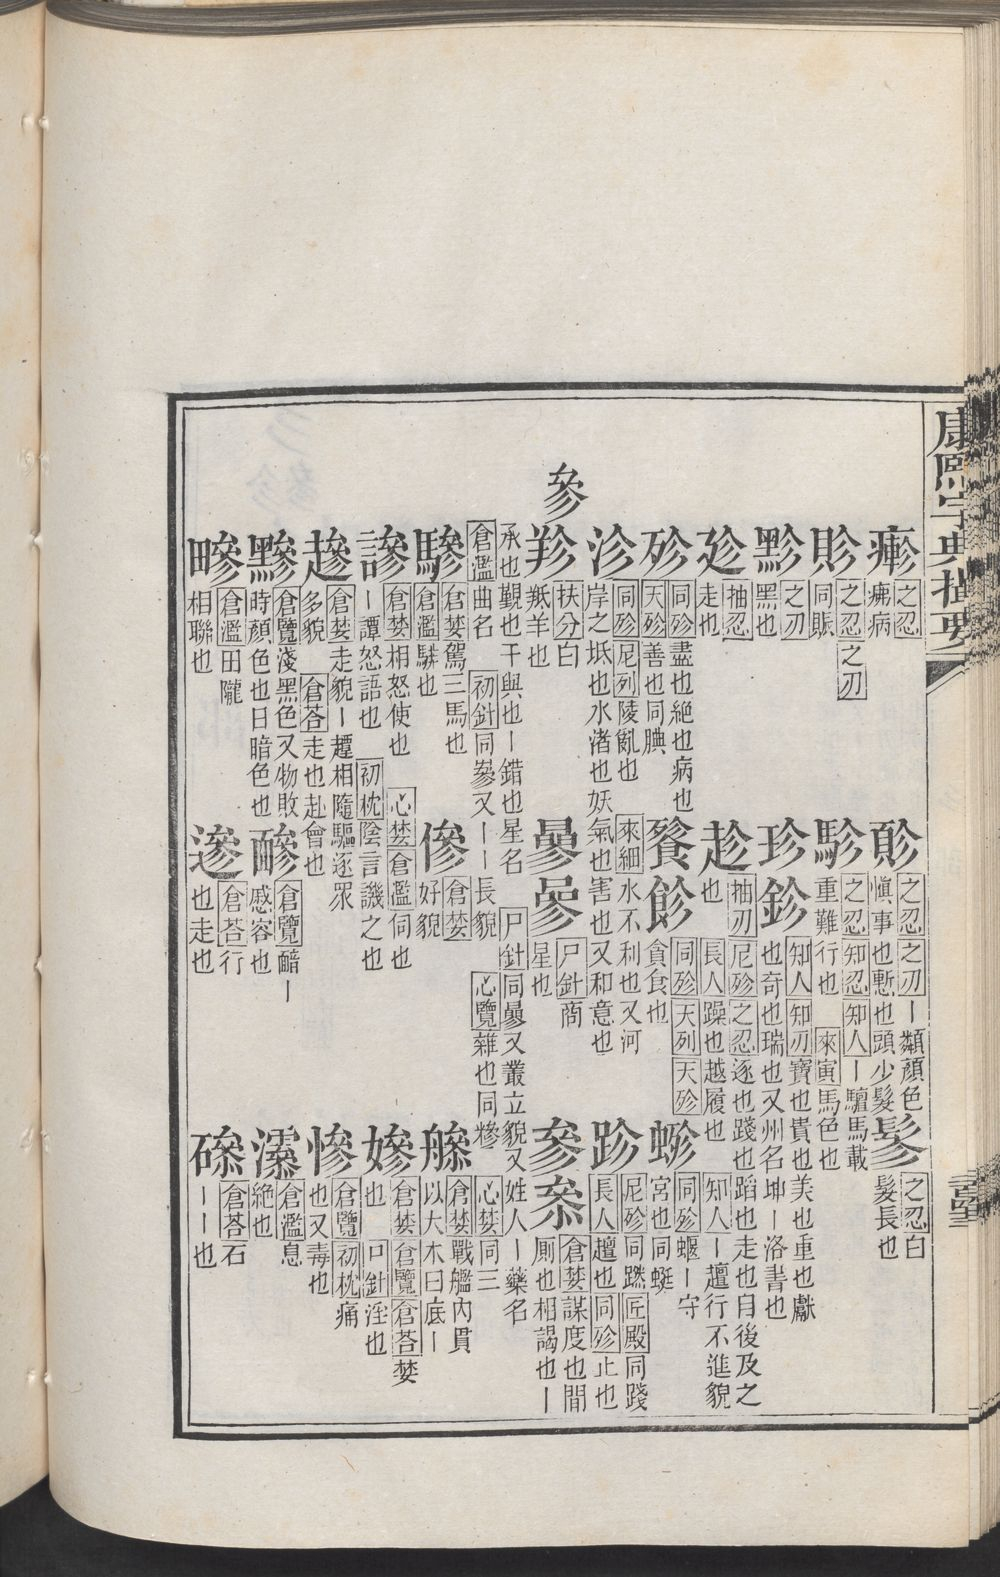 康熙字典撮要
𤺊 之忍 疿病
䝩 之忍 之刃 同賑
黔 之刃 黑也
抽忍 走也
殄 同殄 盡也絶也病也 天殄 善也同腆
沴 同殄 尼列 陵亂也 來細 水不利也又河岸之坻也水渚也妖氣也害也又和意也
扶分 白羝羊也
之忍 之刃 丨纇顏色愼事也慙也頭少髮
駗 之忍 知忍 知人 丨驙馬載重難行也 來寅 馬色也
珍鉁 知人 知刃 寶也貴也美也重也獻也奇也瑞也又州名坤丨洛書也
趁 抽刃 尼殄 之忍 逐也踐也蹈也走也自後及之也 長人 躁也越履也 知人 丨䢢行不進貌
餮飻 同殄 天列 天殄 貪食也
同殄 蝘丨守宮也同蜓
跈 尼殄 同蹨 匠殿 同踐 長人 䢢也 同殄 止也
鬒 之忍 白髮長也
參
曑曑 尸針 商星也
參叅 倉婪 謀度也間厠也相謁也丨承也覲也干與也丨錯也星名 尸針 同曑又叢立貌又姓人丨藥名 倉濫 曲名 初針 同篸又丨丨長貌 心覽 雜也同糝 心婪 同三
驂 倉婪 駕三馬也 倉濫 駢也
傪 倉婪 好貌
艬 倉婪 戰艦內貫以大木曰底丨
謲 倉婪 相怒使也 心婪 倉濫 伺也丨譚怒語也 初枕 陰言譏之也
嬠 倉婪 倉覽 倉荅 婪也 尸針 淫也
趲 倉婪 走貌丨䟃相隨驅逐眾多貌 倉荅 走也赴會也
慘 倉覽 初枕 痛也又毒也
黲 倉覽 淺黑色又物敗時顏色也日暗色也
醦 倉覽 䤘丨慼容也
倉濫 息絶也
倉濫 田隴相聯也
倉荅 行也走也
磣 倉荅 石丨丨也